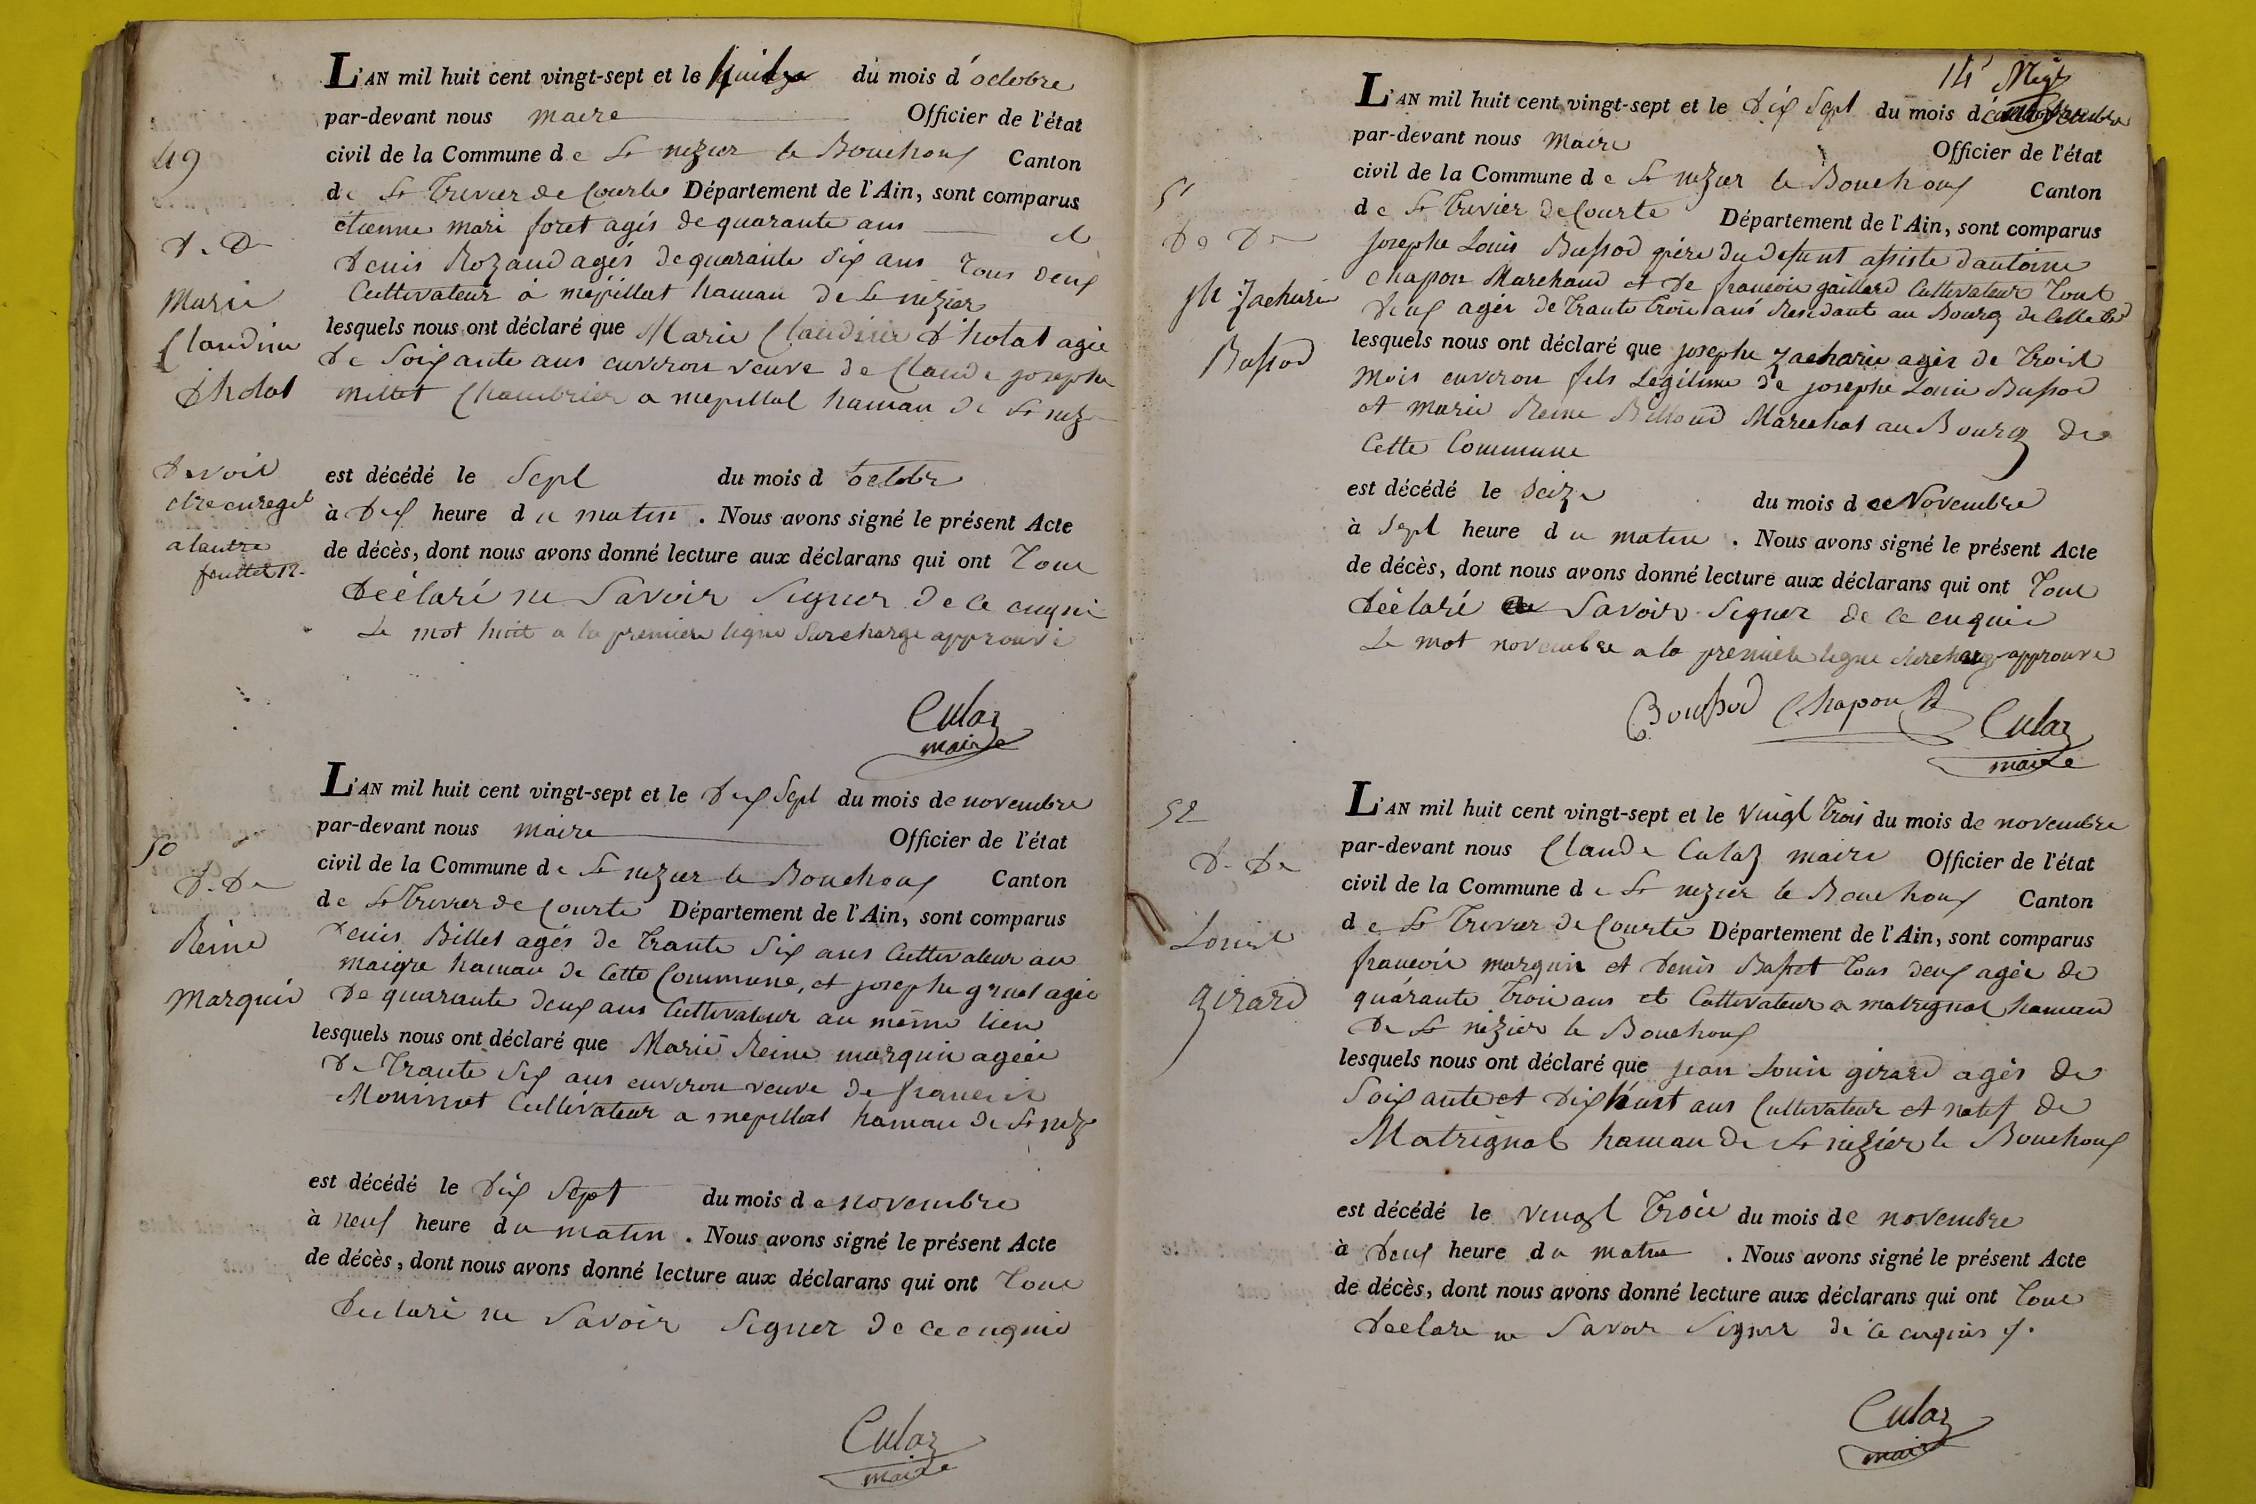 49
D. De
Marie
Claudine
Dholat
Devoit
etre enregit
a lautre
feuillet 12.
L'AN mil huit cent vingt-sept et le huit du mois d'octobre
par-devant nous maire Officier de l'état
civil de la Commune de St nezier le Bouchoux Canton
de St Trivier de Courte Département de l'Ain, sont comparus
etienne mari foret agés de quarante ans et
Denis Rozand agés de quarante Six ans Tous deux
Cultivateur à mépillat hamau de St nézier
lesquels nous ont déclaré que Marie Claudine Dholat agie
De Soixante ans environ veuve de Claude josephe
millet Chambrier a mepillat hamau de St nez
est décédé le Sept du mois d octobre
à Dix heure du matin. Nous avons signé le présent Acte
de décès, dont nous avons donné lecture aux déclarans qui ont Tous
Déclaré ne Savoir Signer de ce enquis
Le mot huit a la premiere ligne Surcharge approuvé
Culaz
maire
50
D. De
Reine
Marquis
L'AN mil huit cent vingt-sept et le Dix Sept du mois de novembre
par-devant nous maire Officier de l'état
civil de la Commune de St nezier le Bouchoux Canton
de St Trivier de Courte Département de l'Ain, sont comparus
Denis Billet agés de Trante Six ans Cultivateur au
maigre hamau de Cette Commune, et josephe gruel agés
De quarante deux ans Cultivateur au même lieu
lesquels nous ont déclaré que Marie Reine marquis agée
De Trante Six ans environ veuve de francois
Moninot Cultivateur a mepillat hamau de St nez
est décédé le Dix Sept du mois de novembre
à neuf heure du matin. Nous avons signé le présent Acte
de décès, dont nous avons donné lecture aux déclarans qui ont Tous
Declaré ne Savoir Signer de ce enquis
Culaz
maire
14
51
De De
Jh Zacharie
Bussod
L'AN mil huit cent vingt-sept et le Dix Sept du mois de novembre
par-devant nous Maire Officier de l'état
civil de la Commune de St nezier le Bouchoux Canton
de St Trivier de Courte Département de l'Ain, sont comparus
Josephe Louis Bussod père du defunt assisté d'antoine
chapon Marchand et De francois gaillard Cultivateur Tout
Deux agés de Trante Trois ans Residant au Bourg de
lesquels nous ont déclaré que josephe Zacharie agés de Trois
Mois environ fils Légitime de josephe Louis Bussod
et marie Reine Billoud Marechal au Bourg de
Cette Commune
est décédé le Seize du mois de Novembre
à Sept heure du matin. Nous avons signé le présent Acte
de décès, dont nous avons donné lecture aux déclarans qui ont Tous
Déclaré Savoir Signer de ce enquis
Le mot novembre a la premiere ligne Surcharge approuvé
Boussod Chapon Culaz
maire
52
D. De
Louis
girard
L'AN mil huit cent vingt-sept et le Vingt Trois du mois de novembre
par-devant nous Claude Culaz maire Officier de l'état
civil de la Commune de St nezier le Bouchoux Canton
de St Trivier de Courte Département de l'Ain, sont comparus
francois marquis et Denis Basset Tous deux agés de
quarante Trois ans et Cultivateur a matrignat hamau
De St nézier le Bouchoux
lesquels nous ont déclaré que jean Louis girard agés de
Soixante et Dix huit ans Cultivateur et natif de
Matrignat hamau De St nezier le Bouchoux
est décédé le vingt Trois du mois de novembre
à Deux heure du matin. Nous avons signé le présent Acte
de décès, dont nous avons donné lecture aux déclarans qui ont Tous
Déclaré ne Savoir Signer de ce enquis
Culaz
maire